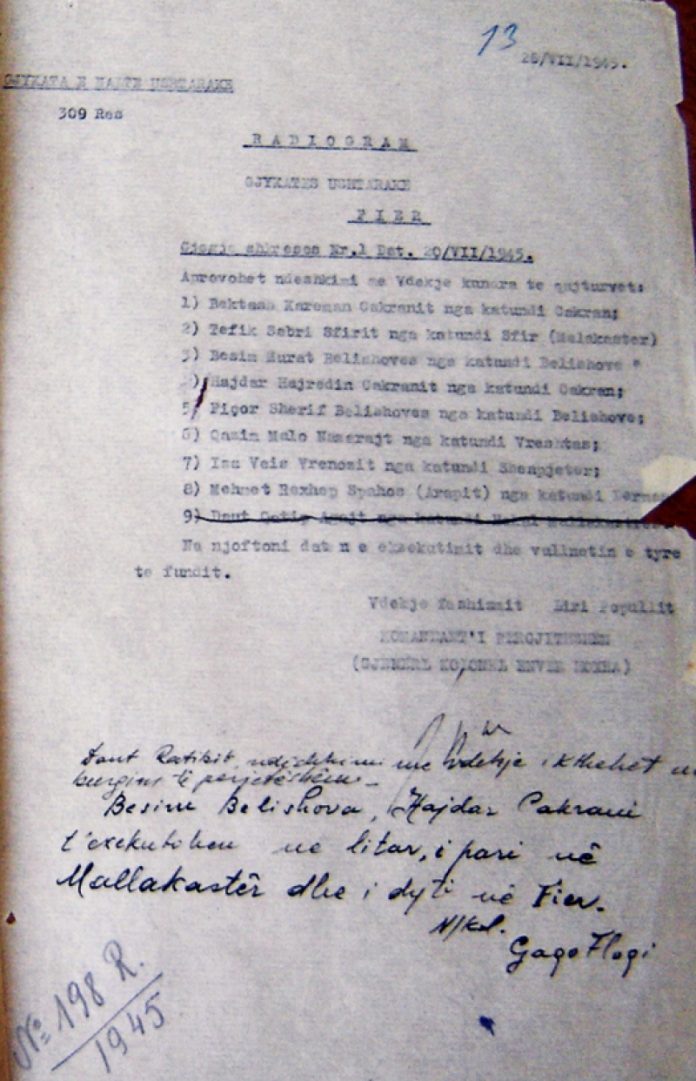 13
28/VII/1945.
GJYKATA E NALTE USHTARAKE
309 Res
RADIOGRAM
GJYKATES USHTARAKE
FIER
Gjegje shkreses Nr.1 Dat. 20/VII/1945.
Aprovohet ndeshkimi me Vdekje kundra te qujturvet:
1) Bektash Cakranit nga katundi Cakran;
2) Tefik Sabri Sfirit nga katundi Sfir (Malakaster)
3) Besim Murat Belishoves nga katundi Belishove "
4) Hajdar Hajredin Cakranit nga katundi Cakran;
5) Fiqor Sherif Belishoves nga katundi Belishove;
6) Qazim Malo nga katundi Vreshtas;
7) Isa Veis Vrenozit nga katundi
8) Mehmet Rexhep Spahos (Arapit) nga katundi
9) Daut nga katundi
Na njoftoni dat n e eksekutimit dhe vullnetin e tyre
te fundit.
Vdekje fashizmit Liri Popullit
KOMANDANT'I PERGJITHSHEM
(GJENERL KOLONEL ENVER HOXHA)
Daut ndëshkimi me Vdekje i kthehet
burgim të përjetëshëm -
Besim Belishova, Hajdar Cakrani
t'exekutohen ne litar, i pari në
Mallakastër dhe i dyti në Fier.
N/kol.
Gago Flogi
№ 198 R.
1945